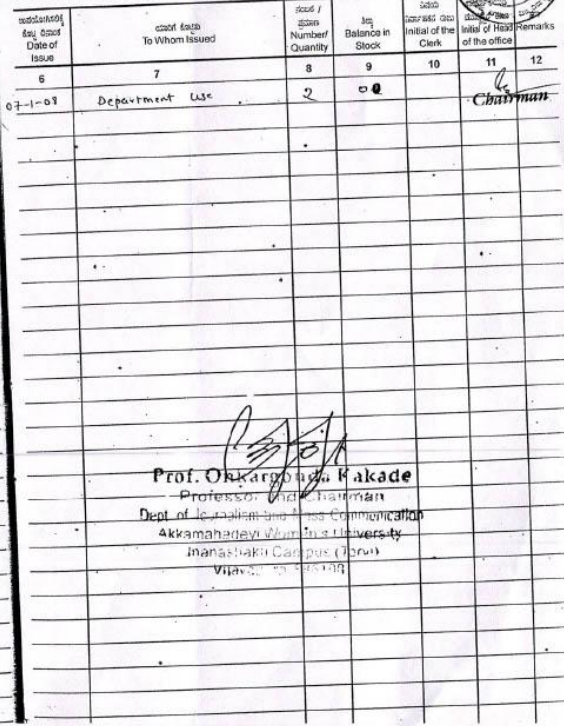 ಯಾರಿಗೆ ಕೊಟ್ಟಿದೆ
Date of Issue
To Whom Issued
Number/ Quantity
Balance in Stock
Initial of the Clerk
Initial of Head of the office
Remarks
6 7 8 9 10 11 12
07-1-08 Department Use 2 00
Chairman
Prof. Onkargouda Kakade
Professor and Chairman
Dept of Journalism and Mass Communication
Akkamahadevi Women's University
Jnanashakti Campus (Torvi)